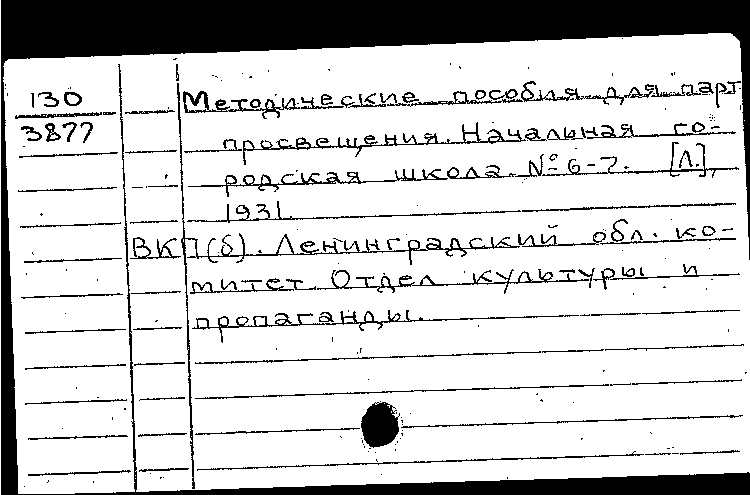 130
3877
Методические пособия для парт
просвещения. Начальная го-
родская школа. № 6-7. [Л.],
1931.
ВКП(б). Ленинградский обл. ко-
митет. Отдел культуры и
пропаганды.